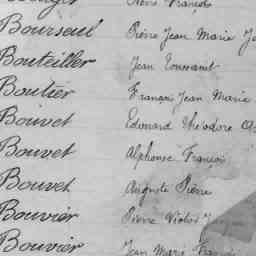 François
Bourseul Pière Jean Marie
Bouteiller Jean Toussaint
Boutier François Jean Marie
Bouvet Edouard théodore
Bouvet Alphonse François
Bouvet Auguste Pière
Bouvier Pierre
Bouvier Jean Marie